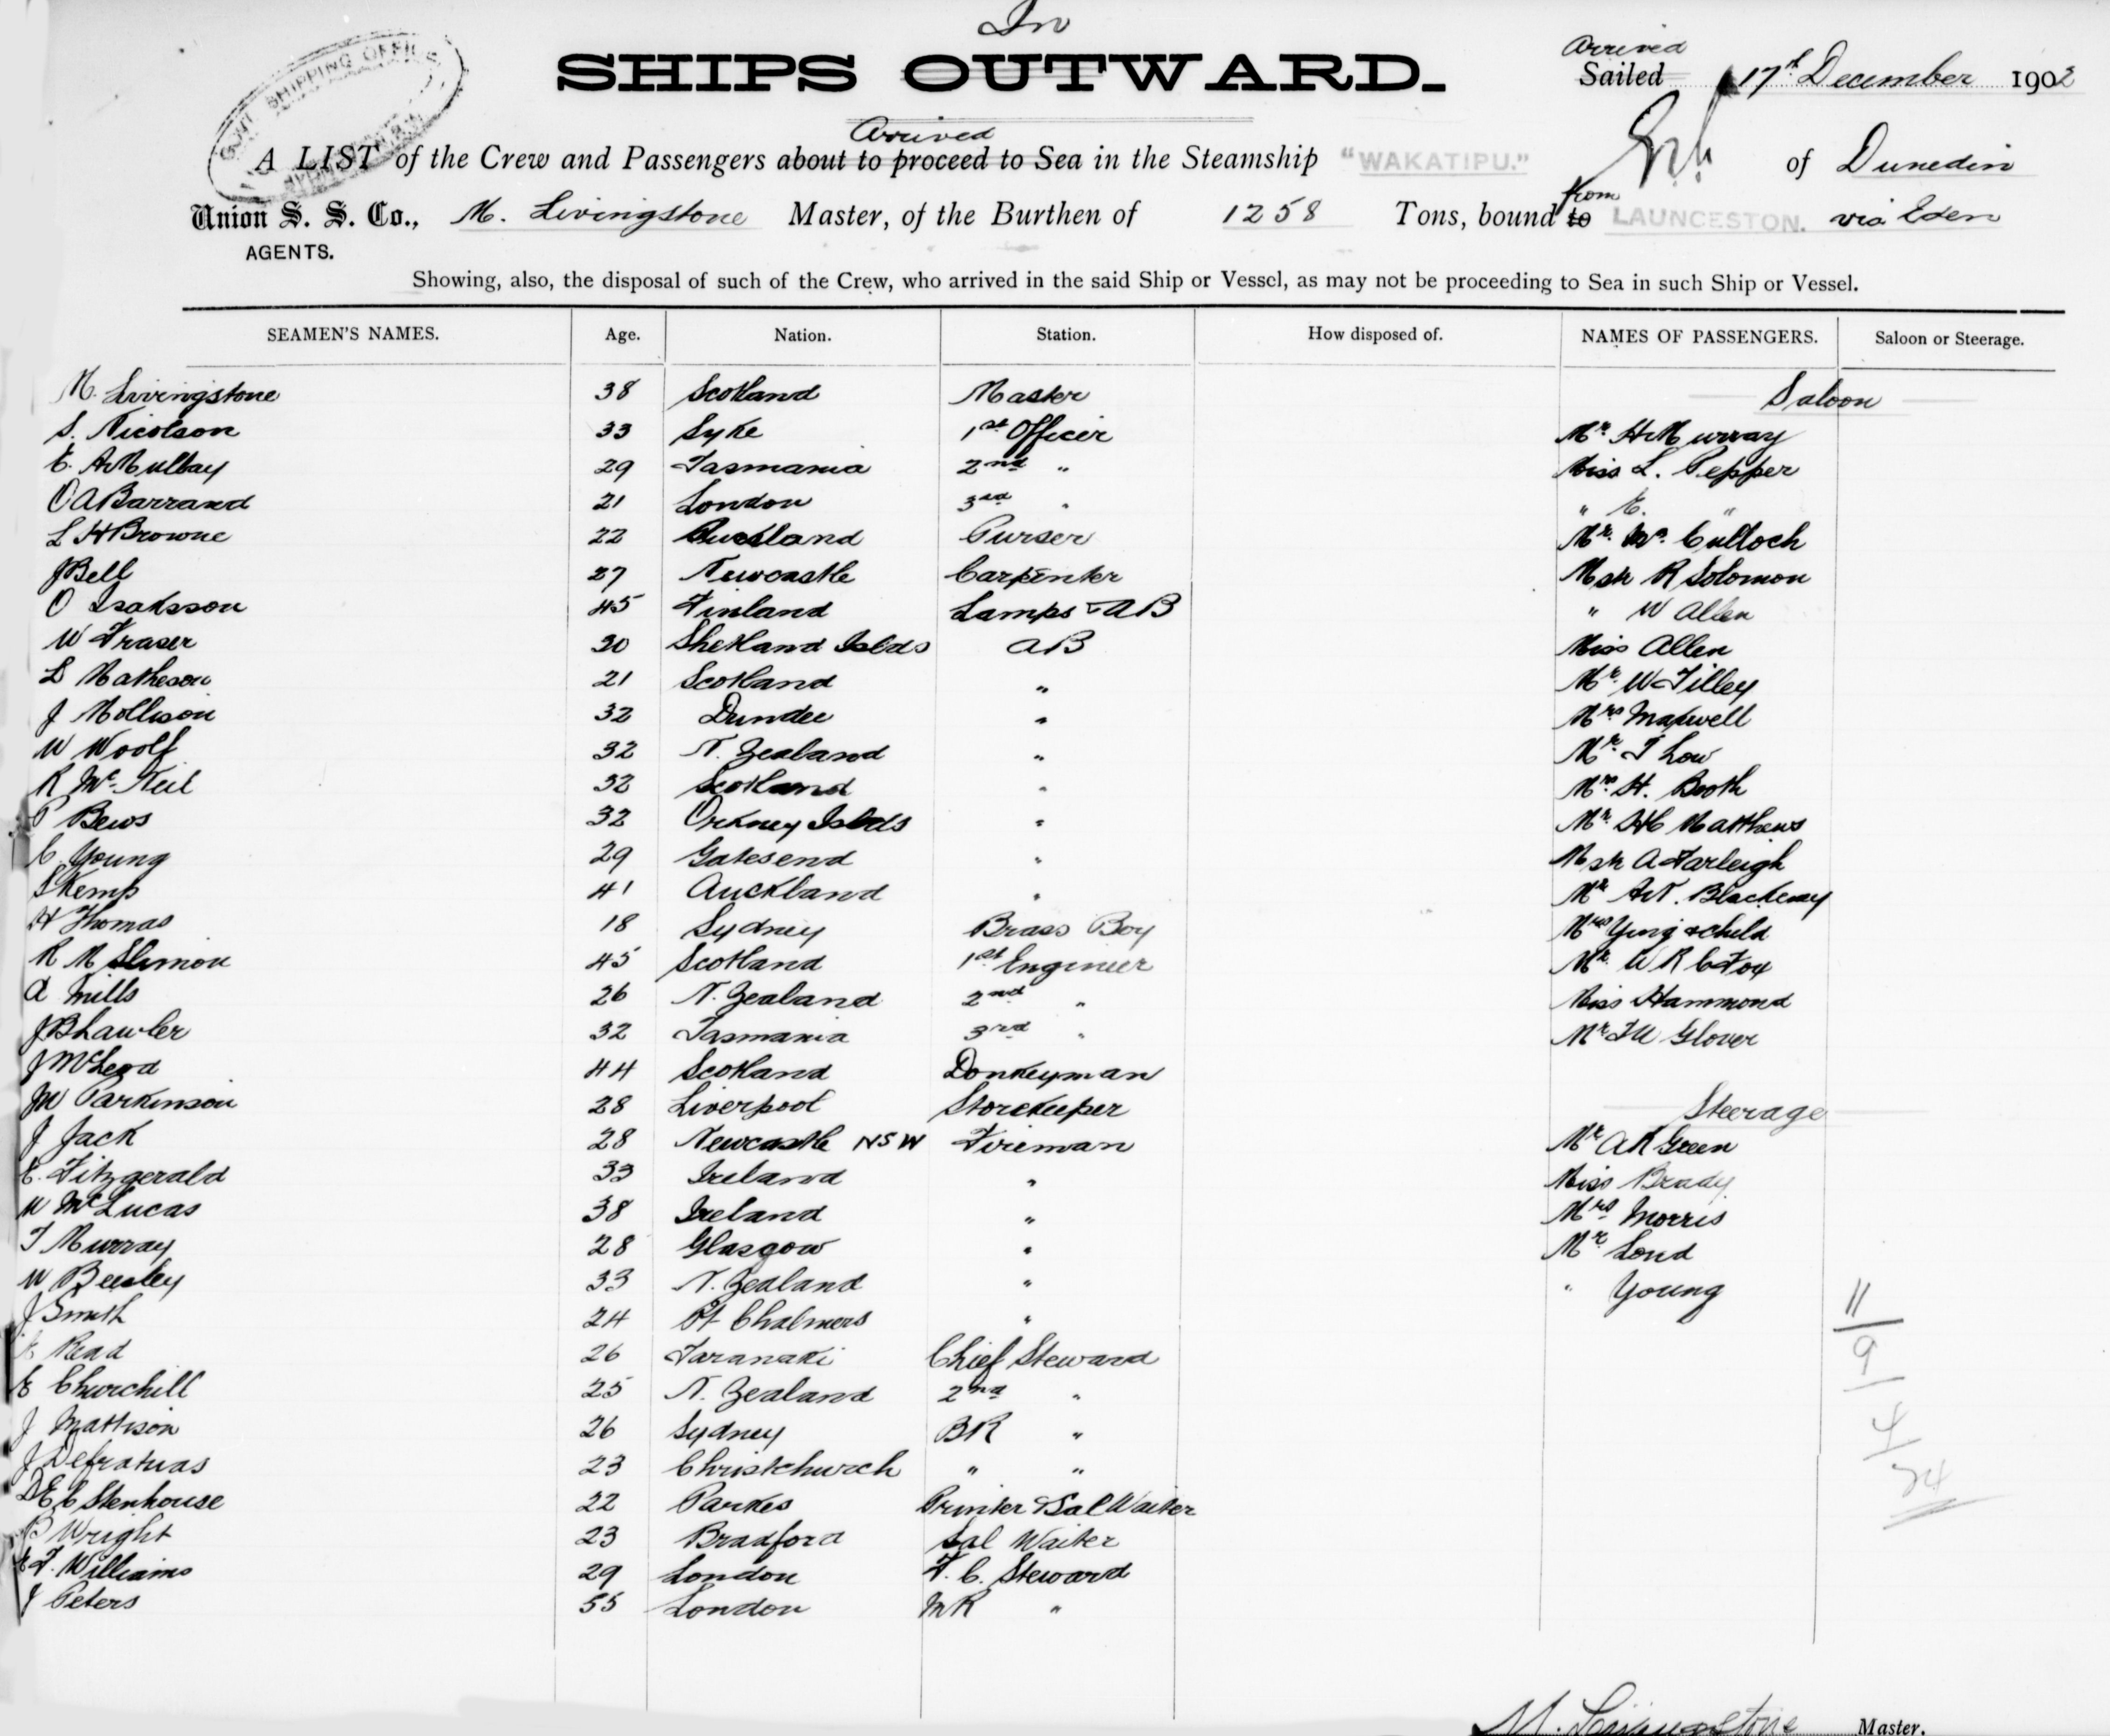 In
SHIPS OUTWARD.
Arrived
Sailed 17th December 1902
GOVT SHIPPING OFFICE
Arrived
A LIST of the Crew and Passengers about to proceed to Sea in the Steamship "WAKATIPU." of Dunedin
from
Union S. S. Co., M. Livingstone Master, of the Burthen of 1258 Tons, bound to LAUNCESTON. via Eden
AGENTS.
Showing, also, the disposal of such of the Crew, who arrived in the said Ship or Vessel, as may not be proceeding to Sea in such Ship or Vessel.
SEAMEN'S NAMES. Age. Nation. Station. How disposed of. NAMES OF PASSENGERS. Saloon or Steerage.
M. Livingstone 38 Scotland Master Saloon
S. Nicolson 33 Syke 1st Officer Mr H Murray
E. 29 Tasmania 2nd " Miss L. Pepper
O A Barrand 21 London 3rd " " E. "
L H Browne 22 Auckland Purser Mr. Mc. Culloch
J Bell 27 Newcastle Carpenter Mstr R Solomon
O Isaksson 45 Finland Lamps & AB " W Allen
W Fraser 30 Shetland Islds AB Miss Allen
D Matheson 21 Scotland " Mr. W Tilley
J Mollison 32 Dundee " Mrs Maxwell
W Woolf 32 N. Zealand " Mr. T Low
R Mc Neil 32 Scotland " Mrs H. Booth
P Bews 32 Orkney Islds " Mr H C Matthews
C. Young 29 Gatesend " Mstr A Farleigh
S Kemp 41 Auckland " Mr Blackeney
H Thomas 18 Sydney Brass Boy Mrs Ying & child
R M Slimon 45 Scotland 1st Engineer Mr. W R C Fox
A Mills 26 N. Zealand 2nd " Miss Hammond
J B Lawler 32 Tasmania 3rd " Mr F W Glover
J McLeod 44 Scotland Donkeyman
W Parkinson 28 Liverpool Storekeeper Steerage
J Jack 28 Newcastle NSW Fireman Mr A R Green
E. Fitzgerald 33 Ireland " Miss Brady
W McLucas 38 Ireland " Mrs Morris
T Murray 28 Glasgow " Mr Lond
W Beesley 33 N. Zealand " " Young
J Smith 24 Pt Chalmers " 11
Read 26 Taranaki Chief Steward 9
E Churchill 25 N. Zealand 2nd "
J Mattison 26 Sydney BR " 4
J Defratuas 23 Christchurch " " 24
D E C Stenhouse 22 Parkes Printer & Sal Waiter
P Wright 23 Bradford Sal Waiter
E F. Williams 29 London F. C. Steward
J Peters 55 London MR "
M. Livingstone Master.